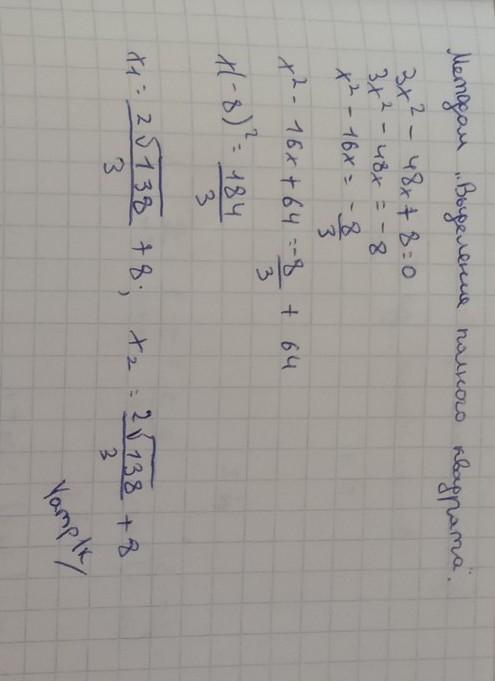 Методом "Выделения полного квадрата".
3x² - 48x + 8 = 0
3x² - 48x = -8
x² - 16x = -8/3
x² - 16x + 64 = -8/3 + 64
x(-8)² = 184/3
x₁ = 2√138/3 + 8; x₂ = 2√138/3 + 8